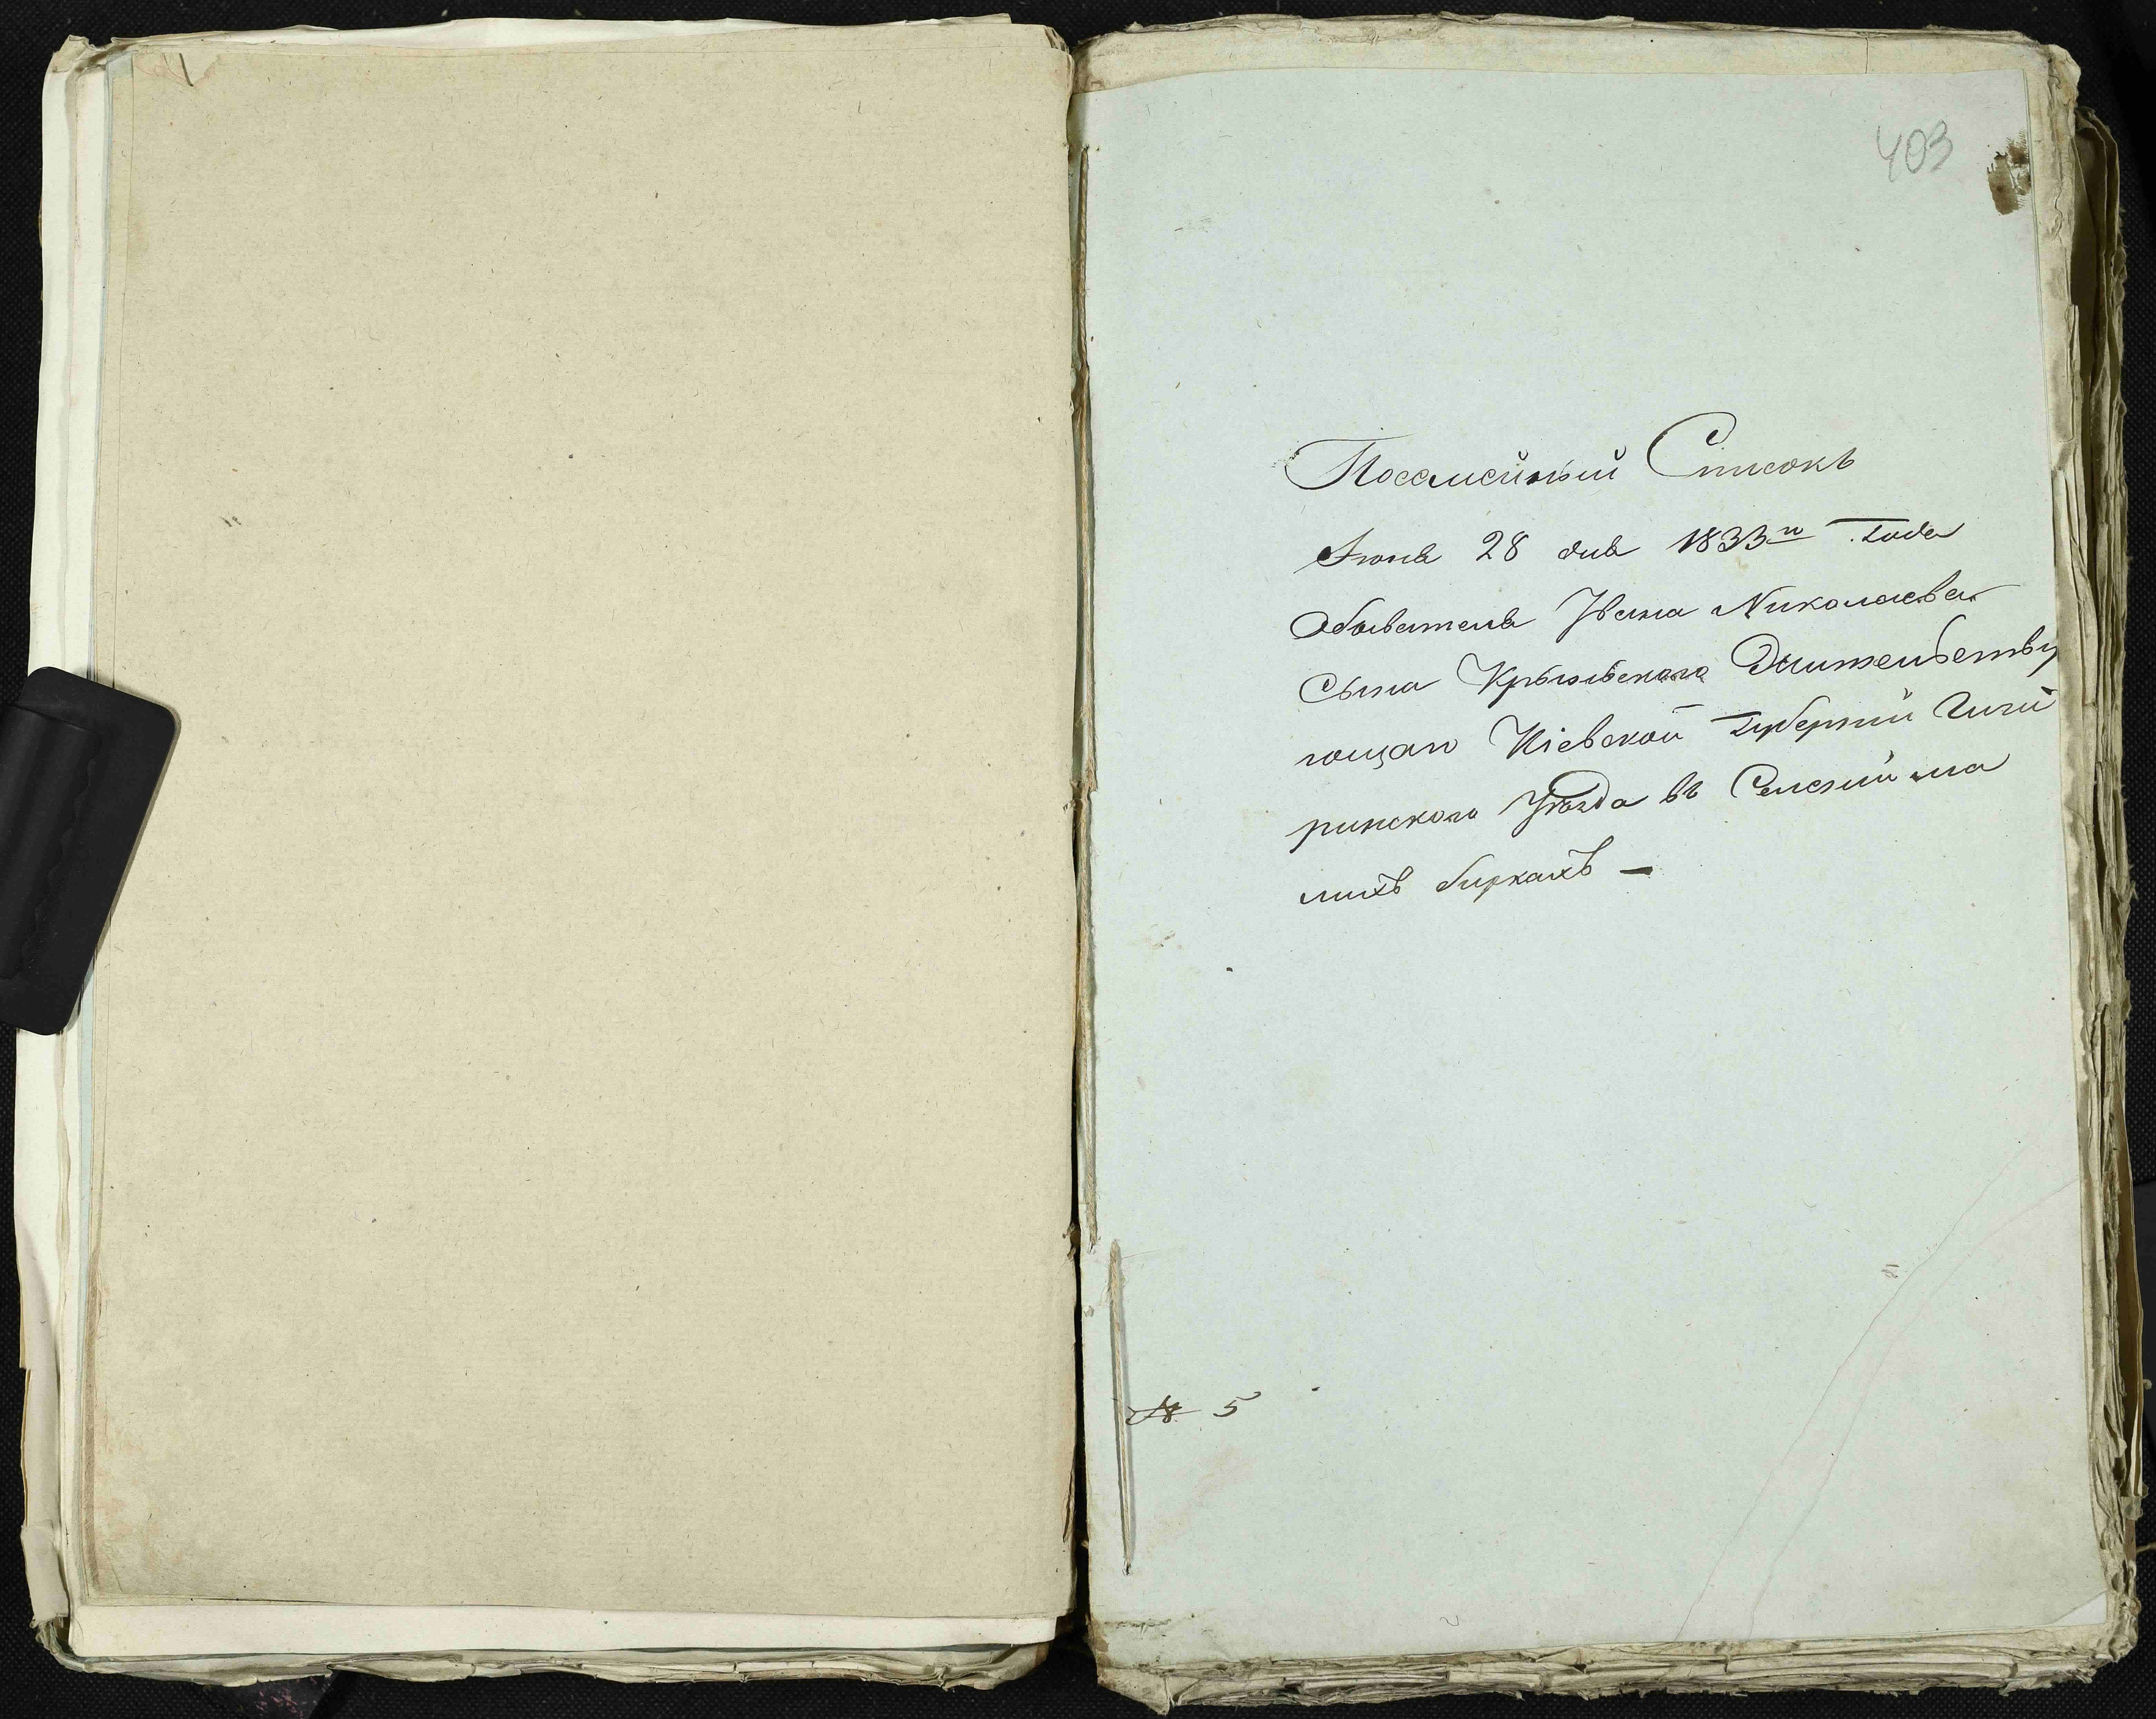 403
Посемейный Списокъ
Июня 28 дня 1833го Года
Обывателя Ивана Николаева
Сына Крыжевскаго Жительству
ющаго Кіевской Губерніи Чиги
ринскаго Уезда въ Селеніи ма
лыхъ биркахъ —
№ 5